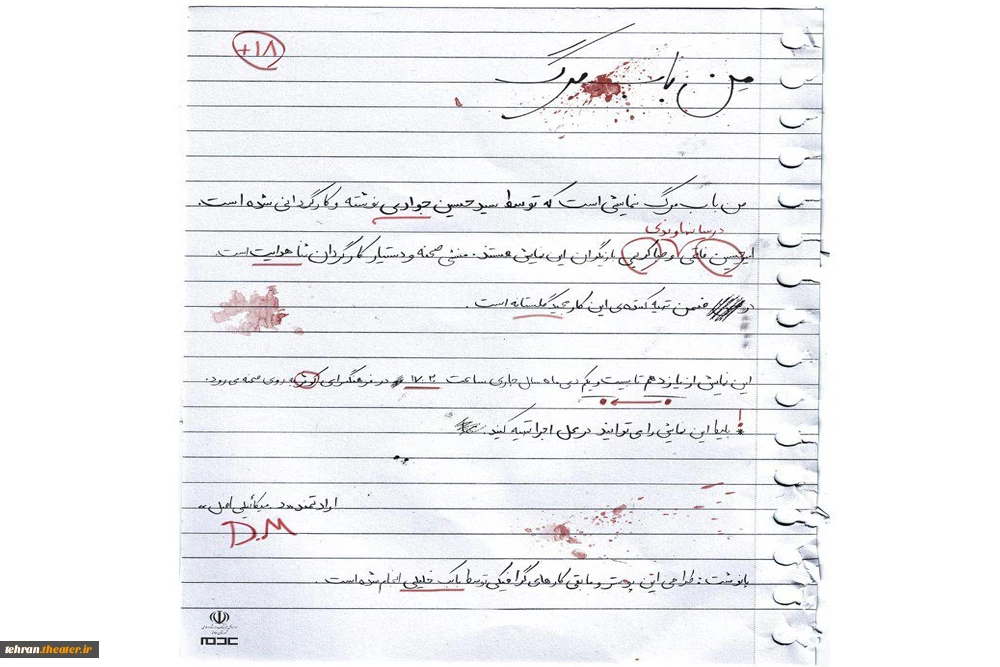 +۱۸
من باب مرگ
من باب مرگ نمایشی است که توسط سید حسین جوادی نوشته و کارگردانی شده است.
درسا نهاوندی
امیرحسین فاتحی و رضا کریمی بازیگران این نمایش هستند. منشی صحنه و دستیار کارگردان هدایت است.
در ضمن تهیه کننده‌ی این کار مجید گلستانه است.
این نمایش از یازدهم تا بیست و یکم دی ماه سال جاری ساعت ۱۷:۳۰ در فرهنگسرای به روی صحنه می رود.
* بلیط این نمایش را می توانید در محل اجرا تهیه کنید.
ارادتمند .د. میکائیلی اصل
D.M
پانوشت: طراحی این پوستر و مابقی کارهای گرافیکی توسط بابک خلیلی انجام شده است.
tehran.theater.ir